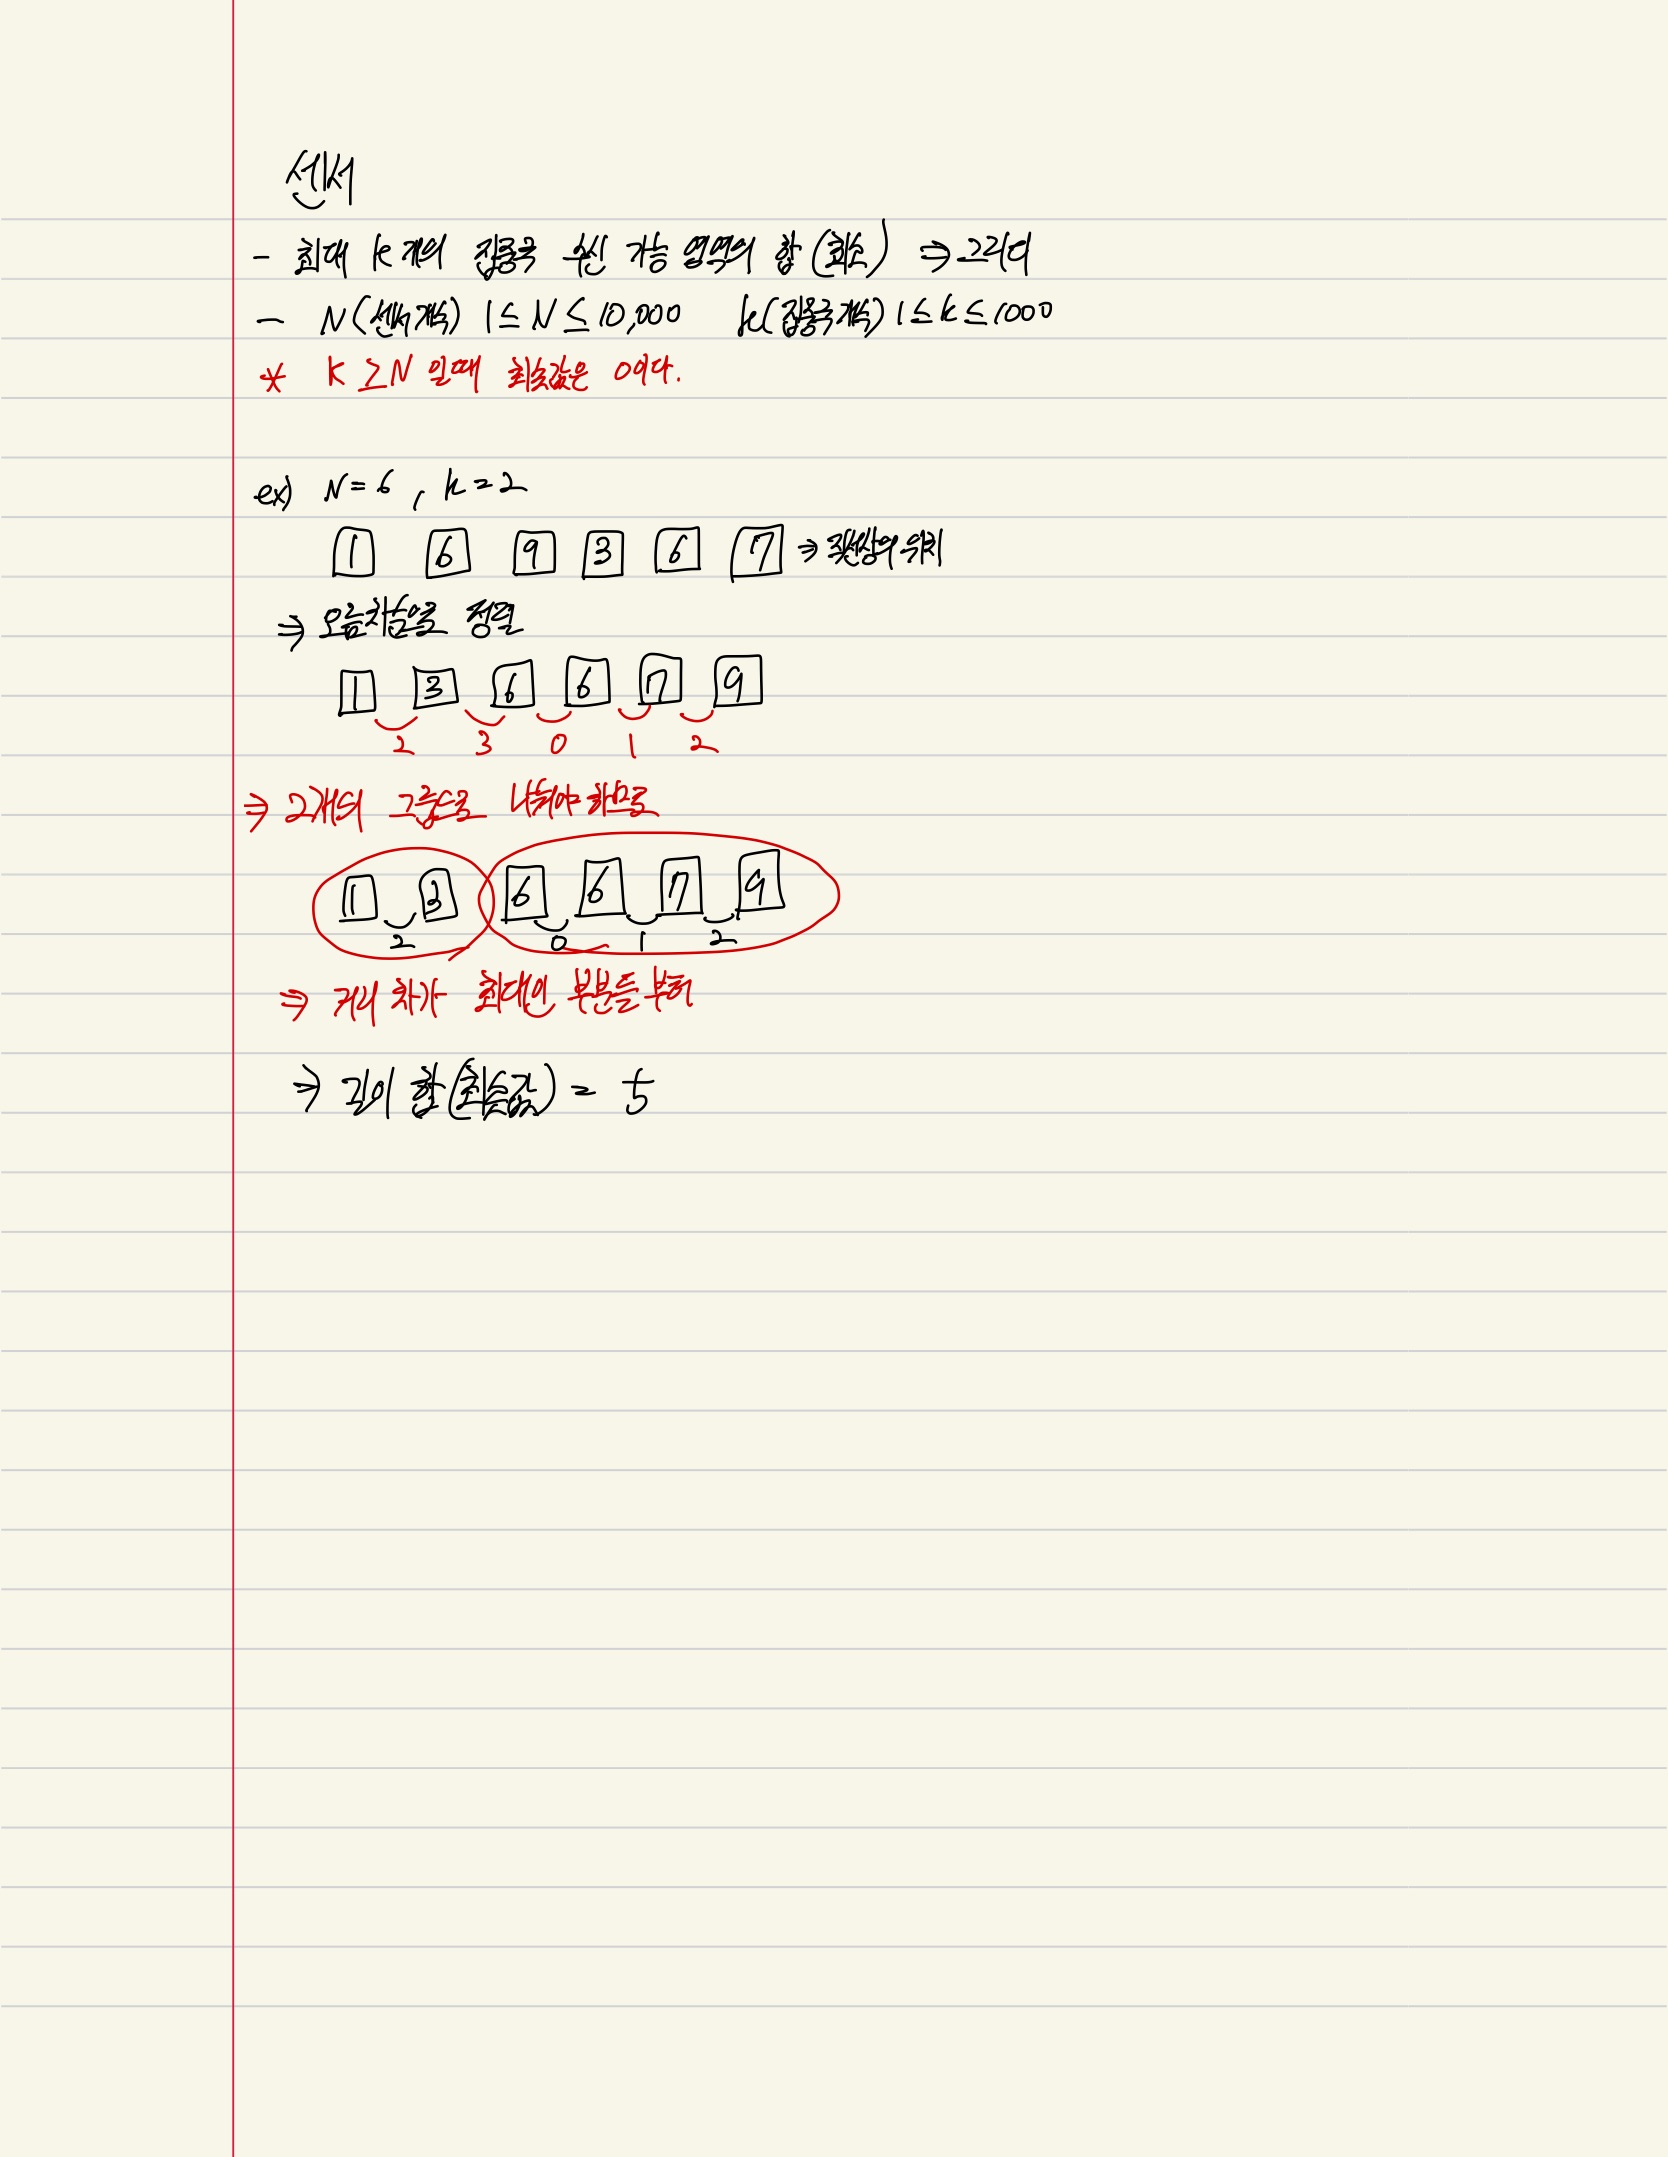 센서
- 최대 k개의 집중국 수신 가능 영역의 합(최소) ⇒ 그리디
- N(센서 개수) 1 ≤ N ≤ 10,000 k(집중국 개수) 1 ≤ k ≤ 1000
* K ≥ N 일때 최솟값은 0이다.
ex) N=6, k=2
1 6 9 3 6 7 ⇒ 직선상의 위치
⇒ 오름차순으로 정렬
1 3 6 6 7 9
2 3 0 1 2
⇒ 2개의 그룹으로 나눠야 하므로
1 3 6 6 7 9
2 0 1 2
⇒ 거리 차가 최대인 부분들부터
⇒ 길이 합(최솟값) = 5